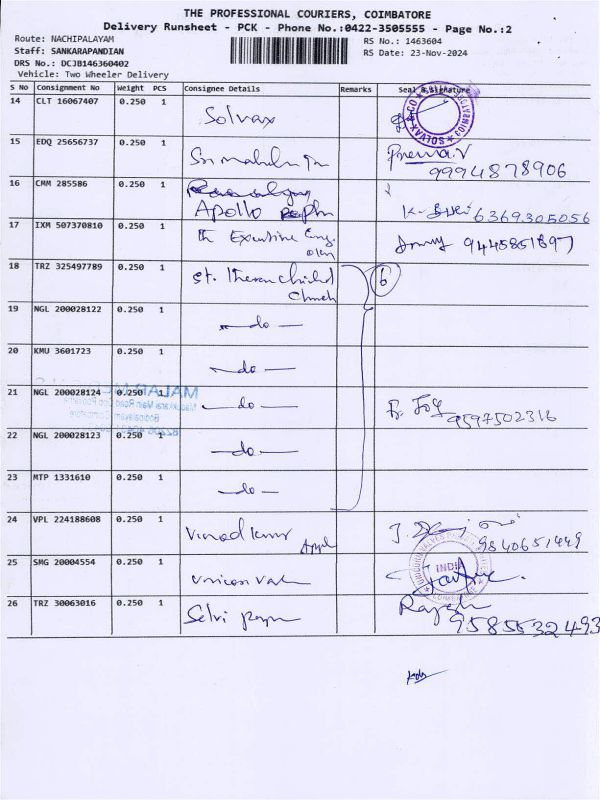 THE PROFESSIONAL COURIERS, COIMBATORE
Delivery Runsheet - PCK - Phone No.:0422-3505555 - Page No.:2
Route: NACHIPALAYAM
Staff: SANKARAPANDIAN
DRS No.: DCJB146360402
Vehicle: Two Wheeler Delivery
RS No.: 1463604
RS Date: 23-Nov-2024
S No Consignment No Weight PCS Consignee Details Remarks Seal & Signature
14 CLT 16067407 0.250 1 Solvax SOLVAX CO
15 EDQ 25656737 0.250 1 Sri Prema.V
9994878906
16 CMM 285586 0.250 1
Apollo K. 6369305056
17 IXM 507370810 0.250 1 Executive Eng. 9445861897
18 TRZ 325497789 0.250 1 St. Church 6
19 NGL 200028122 0.250 1 - do -
20 KMU 3601723 0.250 1 - do -
21 NGL 200028124 0.250 1 - do - Fr. Joy
9597502316
22 NGL 200028123 0.250 1 - do -
23 MTP 1331610 0.250 1 - do -
24 VPL 224188608 0.250 1 Vinod Kumar
9840651449
25 SMG 20004554 0.250 1 INDIA
26 TRZ 30063016 0.250 1 Selvi Rajesh
9585532493